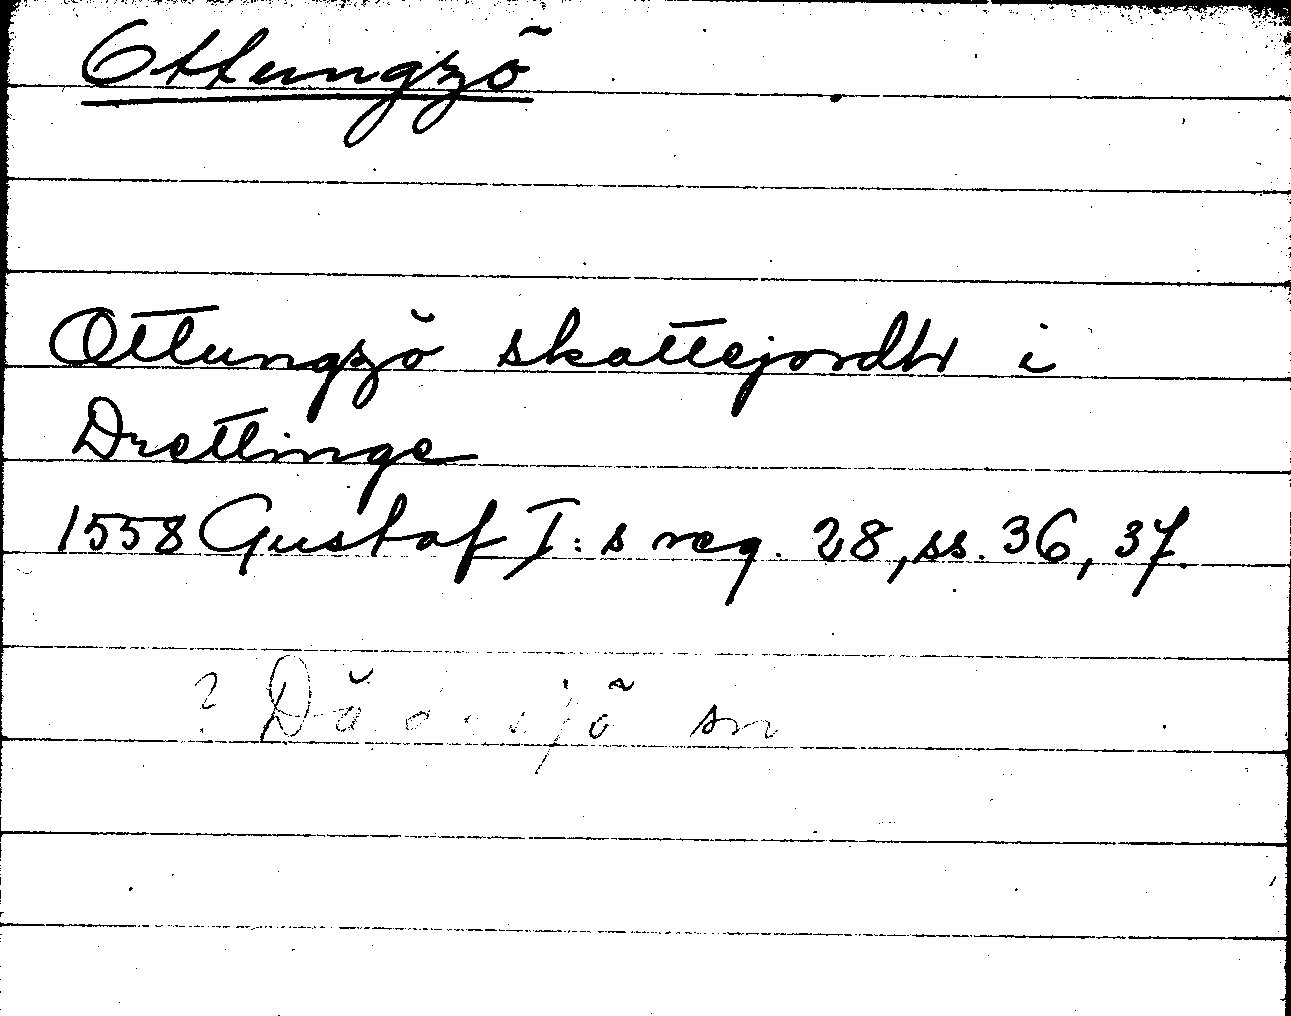 Ottungzö
Ottungzö skattejordh i
Drettinge
1558 Gustaf I:s reg. 28, ss. 36, 37.
? Dädesjö sn